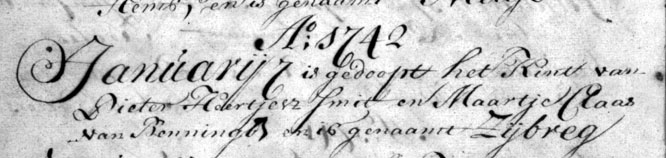 en is genaamt
Ao: 1742
Januarij 7 is gedoopt het Kint van
Pieter Heertjesz Smit en Maartje Claas
van Benningb en is genaamt Zijbreg